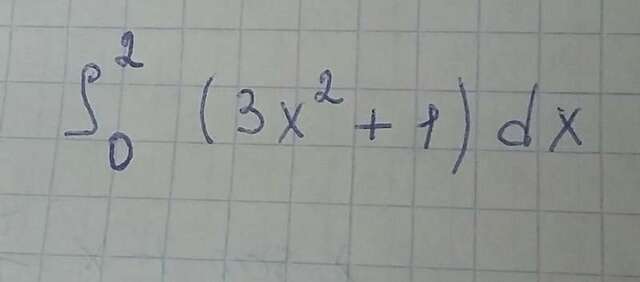 ∫₀² (3x² + 1) dx